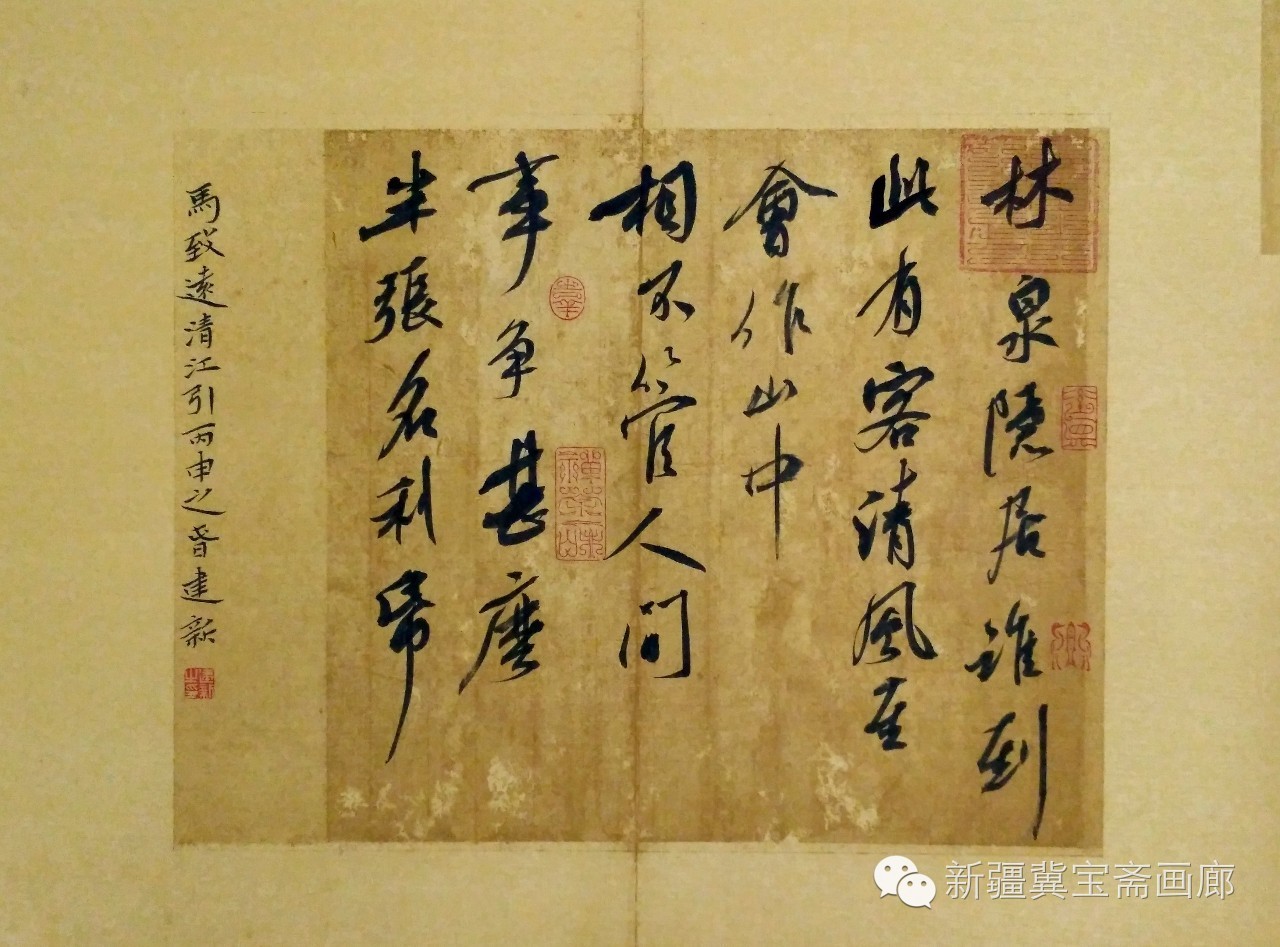 林泉隱居誰到
此有客清風至
會作山中
相不管人間
事争甚麼
半張名利帋
馬致遠清江引丙申之春建新
新疆冀宝斋画廊